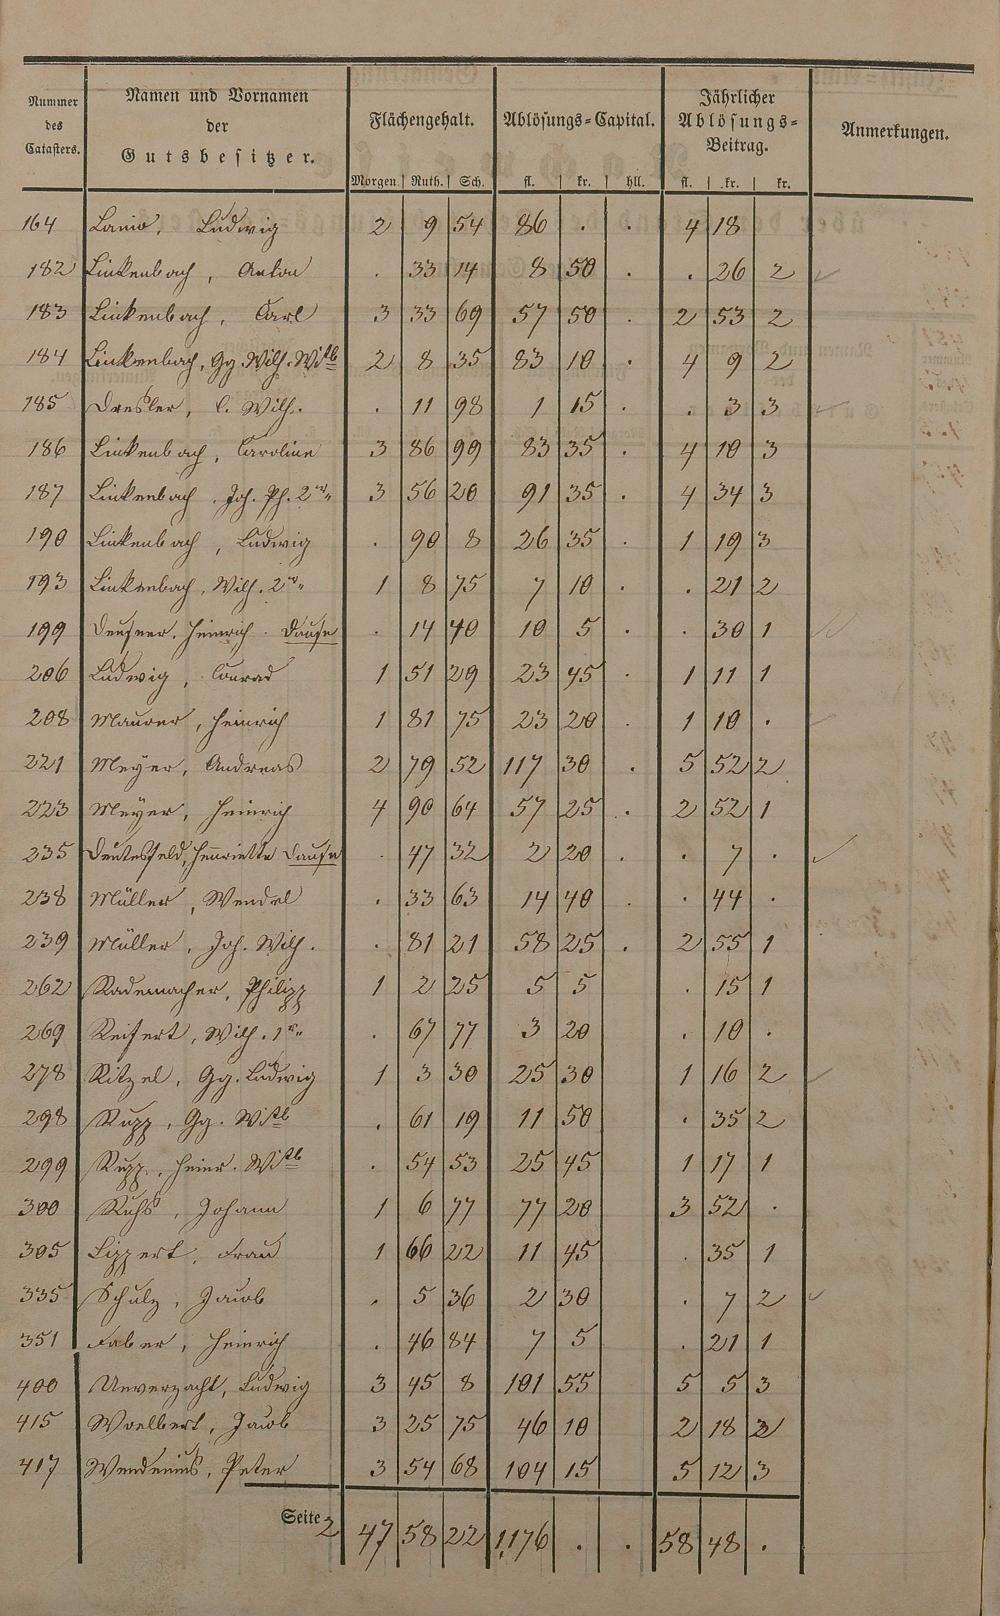 Nummer des Catasters. | Namen und Vornamen der Gutsbesitzer. | Flächengehalt. | Ablösungs-Capital. | Jährlicher Ablösungs-Beitrag. | Anmerkungen.
Morgen. | Ruth. | Sch. | fl. | kr. | hll. | fl. | kr. | kr.
164 Lanio, Ludwig 2 9 54 86 . . 4 18
182 Linkenbach, Anton . 33 14 8 50 . . 26 2
183 Linkenbach, Carl 3 33 69 57 50 . 2 53 2
184 Linkenbach, Gg. Wilh. Wtb 2 8 35 83 10 . 4 9 2
185 Dresler, C. Wilh. . 11 98 1 15 . . 3 3
186 Linkenbach, Caroline 3 86 99 83 35 . 4 10 3
187 Linkenbach, Joh. Ph. 2r 3 56 20 91 35 . 4 34 3
190 Linkenbach, Ludwig . 90 8 26 35 . 1 19 3
193 Linkenbach, Wilh. 2r 1 8 75 7 10 . . 21 2
199 Deusner, Heinrich . 14 40 10 5 . . 30 1
206 Ludwig, Conrad 1 51 29 23 45 . 1 11 1
208 Maurer, Heinrich 1 81 75 23 20 . 1 10 .
221 Meyer, Andreas 2 79 52 117 30 . 5 52 2
223 Meyer, Heinrich 4 90 64 57 25 . 2 52 1
235 Henriette . 47 32 2 20 . . 7 .
238 Müller, Wendel . 33 63 14 40 . . 44 .
239 Müller, Joh. Wilh. . 81 21 58 25 . 2 55 1
262 Rademacher, Philipp 1 2 25 5 5 . 15 1
269 Reifert, Wilh. 1r . 67 77 3 20 . 10 .
278 Ritzel, Gg. Ludwig 1 3 30 25 30 1 16 2
298 Rupp, Gg. Wtb . 61 19 11 50 . 35 2
299 Rupp, Heinr. Wtb . 54 53 25 45 1 17 1
300 Ruhs, Johann 1 6 77 77 20 3 52 .
305 Lippert, Franz 1 66 22 11 45 . 35 1
335 Schulz, Jacob . 5 36 2 30 . 7 2
351 Faber, Heinrich . 46 84 7 5 . 21 1
400 Unverzacht, Ludwig 3 45 8 101 55 5 5 3
415 Woelbert, Jacob 3 25 75 46 10 2 18 2
417 Wendenius, Peter 3 54 68 104 15 5 12 3
Seite 2 47 58 22 1,176 . . 58 48 .